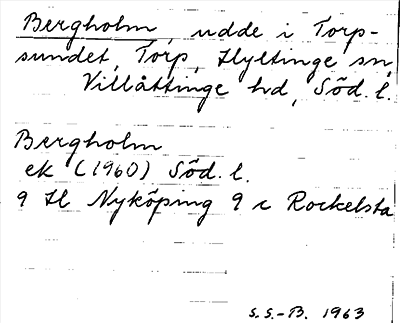 Bergholm, udde i Torp-
sundet, Torp, Hyltinge sn,
Villåttinge hd, Söd. l.
Bergholm
ek (1960) Söd. l.
9 H Nyköping 9 c Rockelsta
S.S.-B. 1963